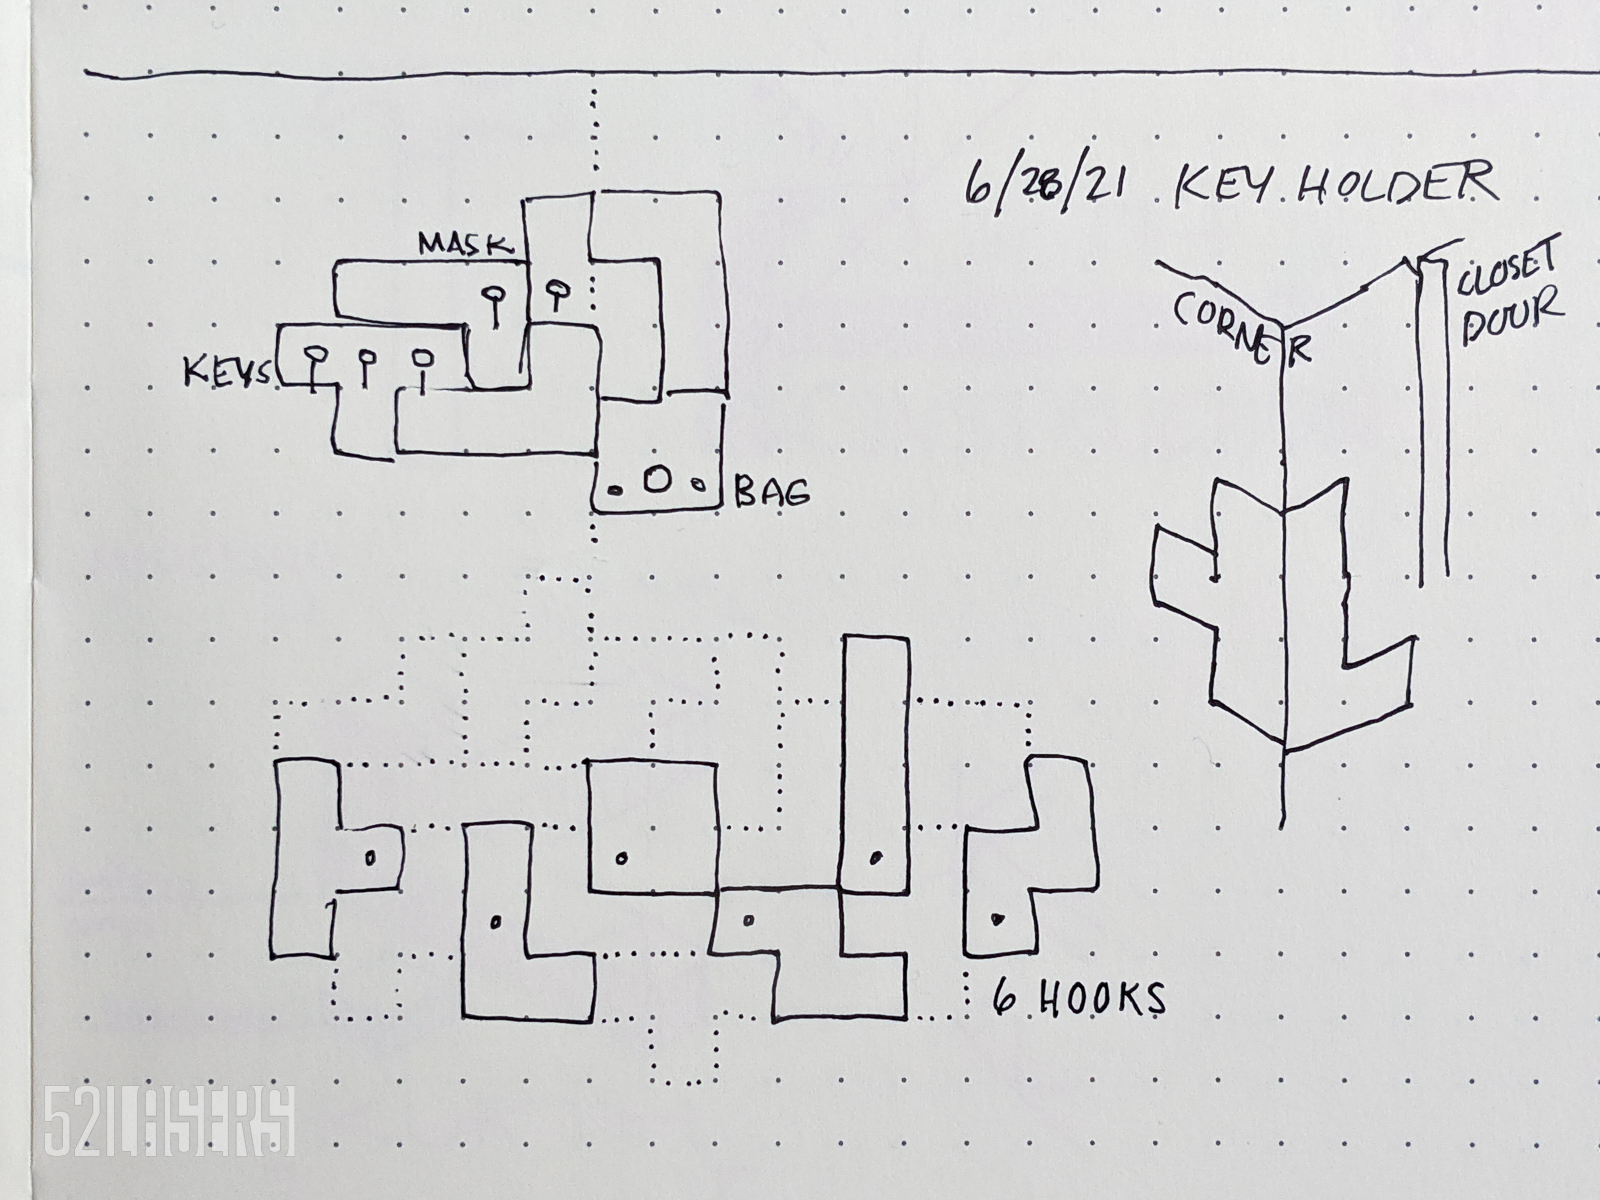 6/28/21 KEY HOLDER
MASK
KEYS
BAG
CORNER
CLOSET
DOOR
6 HOOKS
52LASERS